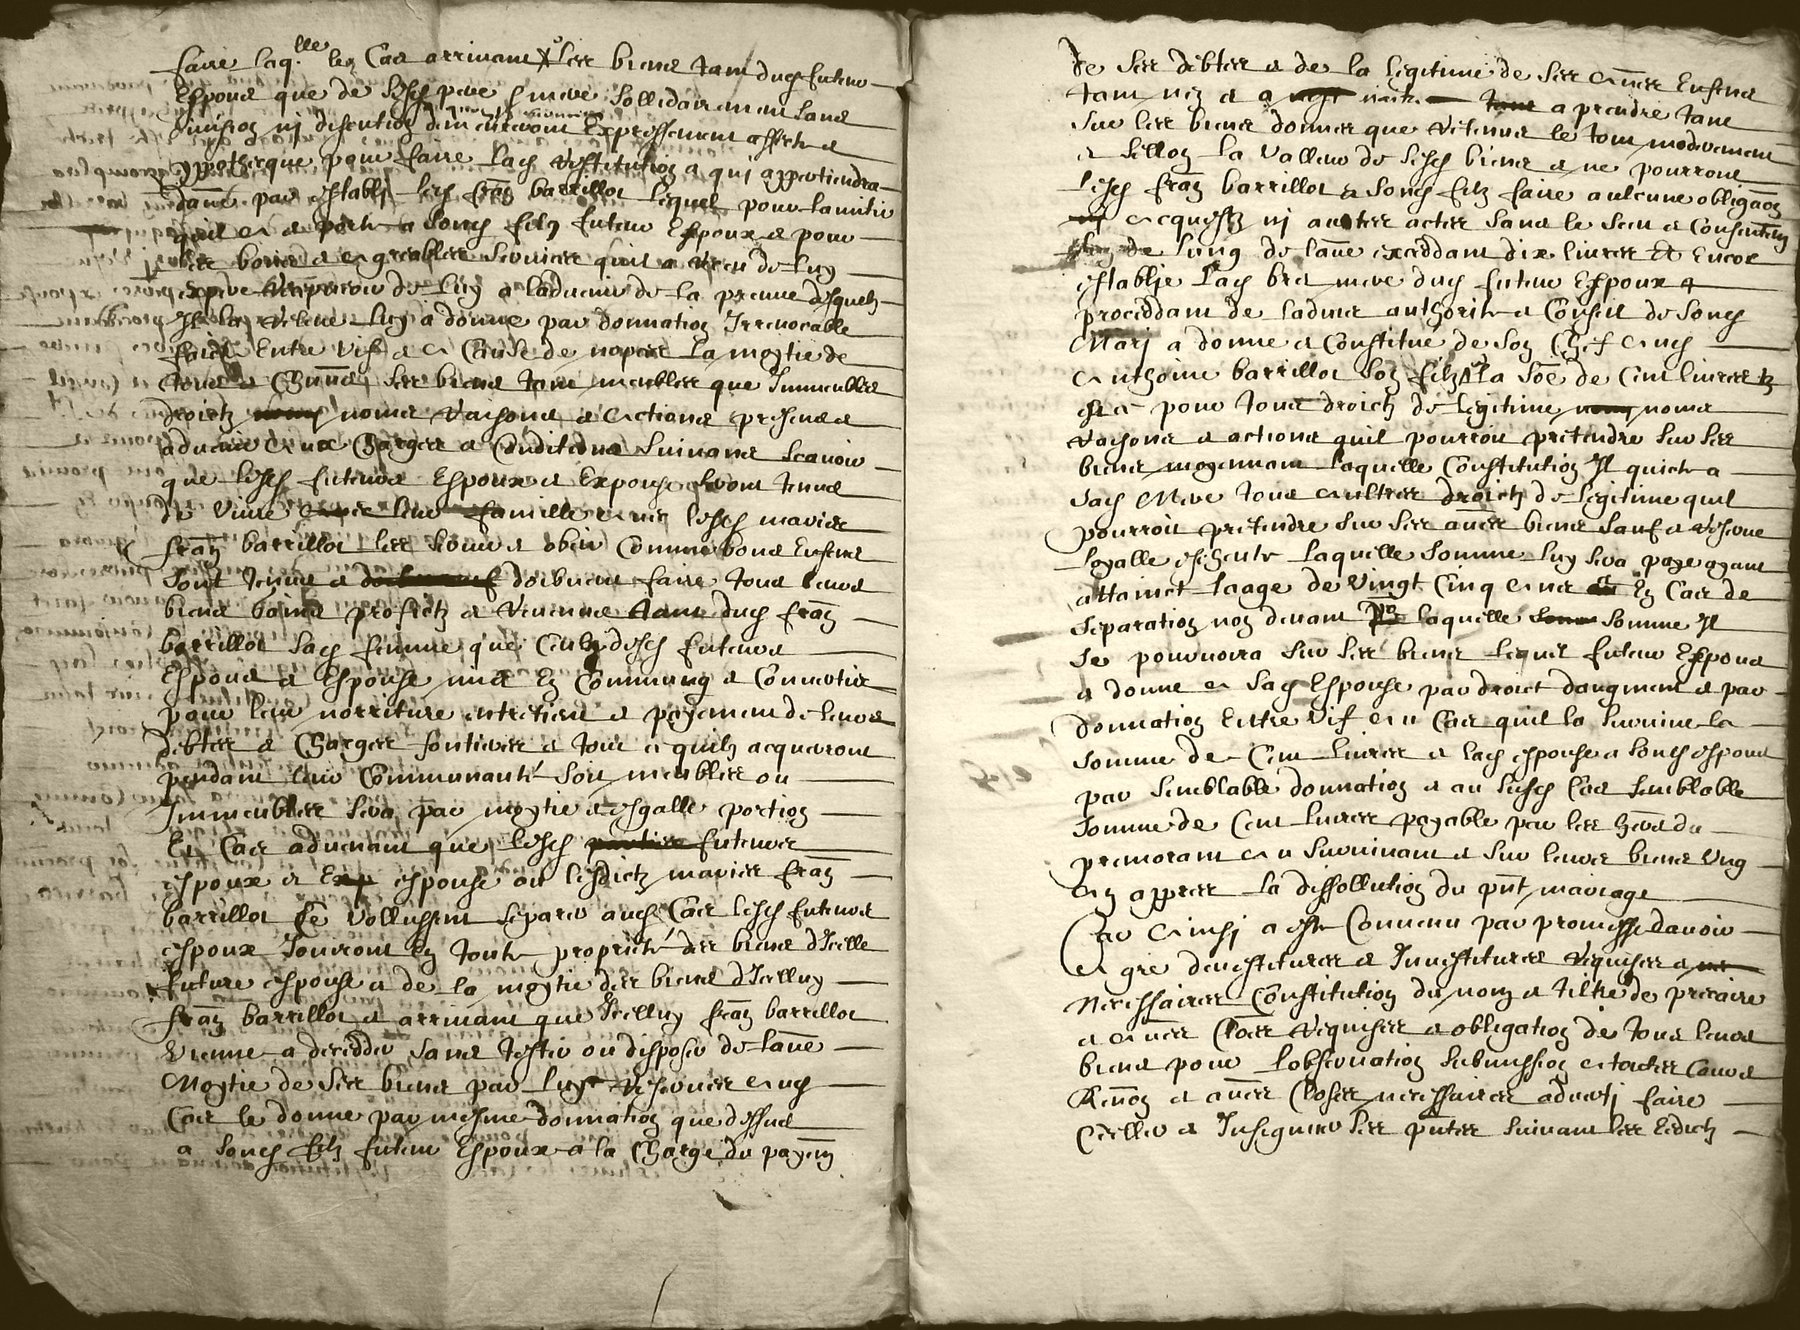 faire laq.lle le Cas arrivant les biens tant dud futeur
Espoux que de sesd pere & mere sollidairement sans
division ny discution demeureront Expressement affecte &
yppothecque pour faire lad restitution a qui appartiendra
par establi led fran barrillot lequel pour lamitie
quil a & porte a sond filz futeur Espoux & pour
les bons & agreables services quil a receu de luy
& espere recepvoir de luy a ladvenir de la preuve desquelz
Il la releve luy a donne par donnation Irrevocable
faict Entre vifz & a Cause de nopces la moytie de
tous & Chūns ses biens tant meubles que Immeubles
droictz noms raisons & actions presens &
advenir aux Charges & Conditions suivans scavoir
que lesd futeurs Espoux & Expouse seront tenus
de vivre leur famille avec lesd maries
fran barrillot les servir & obeir Comme bons Enfens
sont tenus & doibvent faire tous leurs
biens boins profictz & revenus tant dud fran
barrillot sad femme que Ceulx desd futeurs
Espoux & Espouse mis En Commung & Convertir
pour leur norriture entretient & payement de leurs
debtes & Charges fontieres & tout ce quilz acquerront
pendant leur Communauté soit meubles ou
Immeubles sera par moytie & esgalle portion
En Cas advenant que lesd futeurs
espoux & espouse ou lesdictz maries fran
barrillot se vollussent separer aud Cas lesd futeurs
espoux Jouiront en toute proprieté des biens dIcelle
future espouse & de la moytie des biens dIcelluy
fran barrillot & arrivant que Icelluy fran barrillot
vienne a decedder sans tester ou disposer de laūe
Moytie de ses biens par luy reserves aud
Cas le donne par mesme donnation que dessus
a sond filz futeur Espoux a la Charge du payem
de ses debtes & de la legitime de ses aūes Enfens
tant nez & a naistre a prendre tant
sur les biens donnes que retenus le tout modurement
& sellon la valleur de sesd biens & ne pourront
lesd fran barrillot & sond filz faire aulcune obligaon
acquestz ny aultres actes sans le sceu & Consentem
lung de laūe exceddant dix livres Et Encor
establye lad mere dud futeur Espoux
proceddant de ladvis authorite & Conseil de sond
Mary a donne & Constitue de son Chef aud
anthoine barrillot son filz la soē de Cent livres
& ce pour tous droictz de legitime noms
raisons & actions quil pourroit pretendre sur ses
biens moyennant laquelle Constitution Il quicte a
sad Mere tous aultres droictz de legitime quil
pourroit pretendre sur ses aūes biens sauf & reserve
loyalle laquelle somme luy sera paye ayant
attainct laage de vingt Cinq ans En Cas de
separation non devant laquelle somme Il
se pourvoira sur ses biens lequel futeur Espoux
a donne a sad Espouse par droict daugment & par
donnation Entre vifz au Cas quil la survive la
somme de Cent livres & lad espouse a sond espoux
par semblable donnation & au susd Cas semblable
somme de Cent livres payable par les du
premorant au survivant & sur leurs biens ung
an appres la dissollution du pñt mariage
Car ainsi a este Convenu par promesse davoir
a gre devestitures & Investitures requises &
necessaires Constitution du nom & tiltre de precaire
& aūes Closes requises & obligation de tous leurs
biens pour lobservation submission a toutes Cours
Renōn & aūes Closes necessaires adverti faire
seeller & Insignuer les pñtes suivant les Edictz